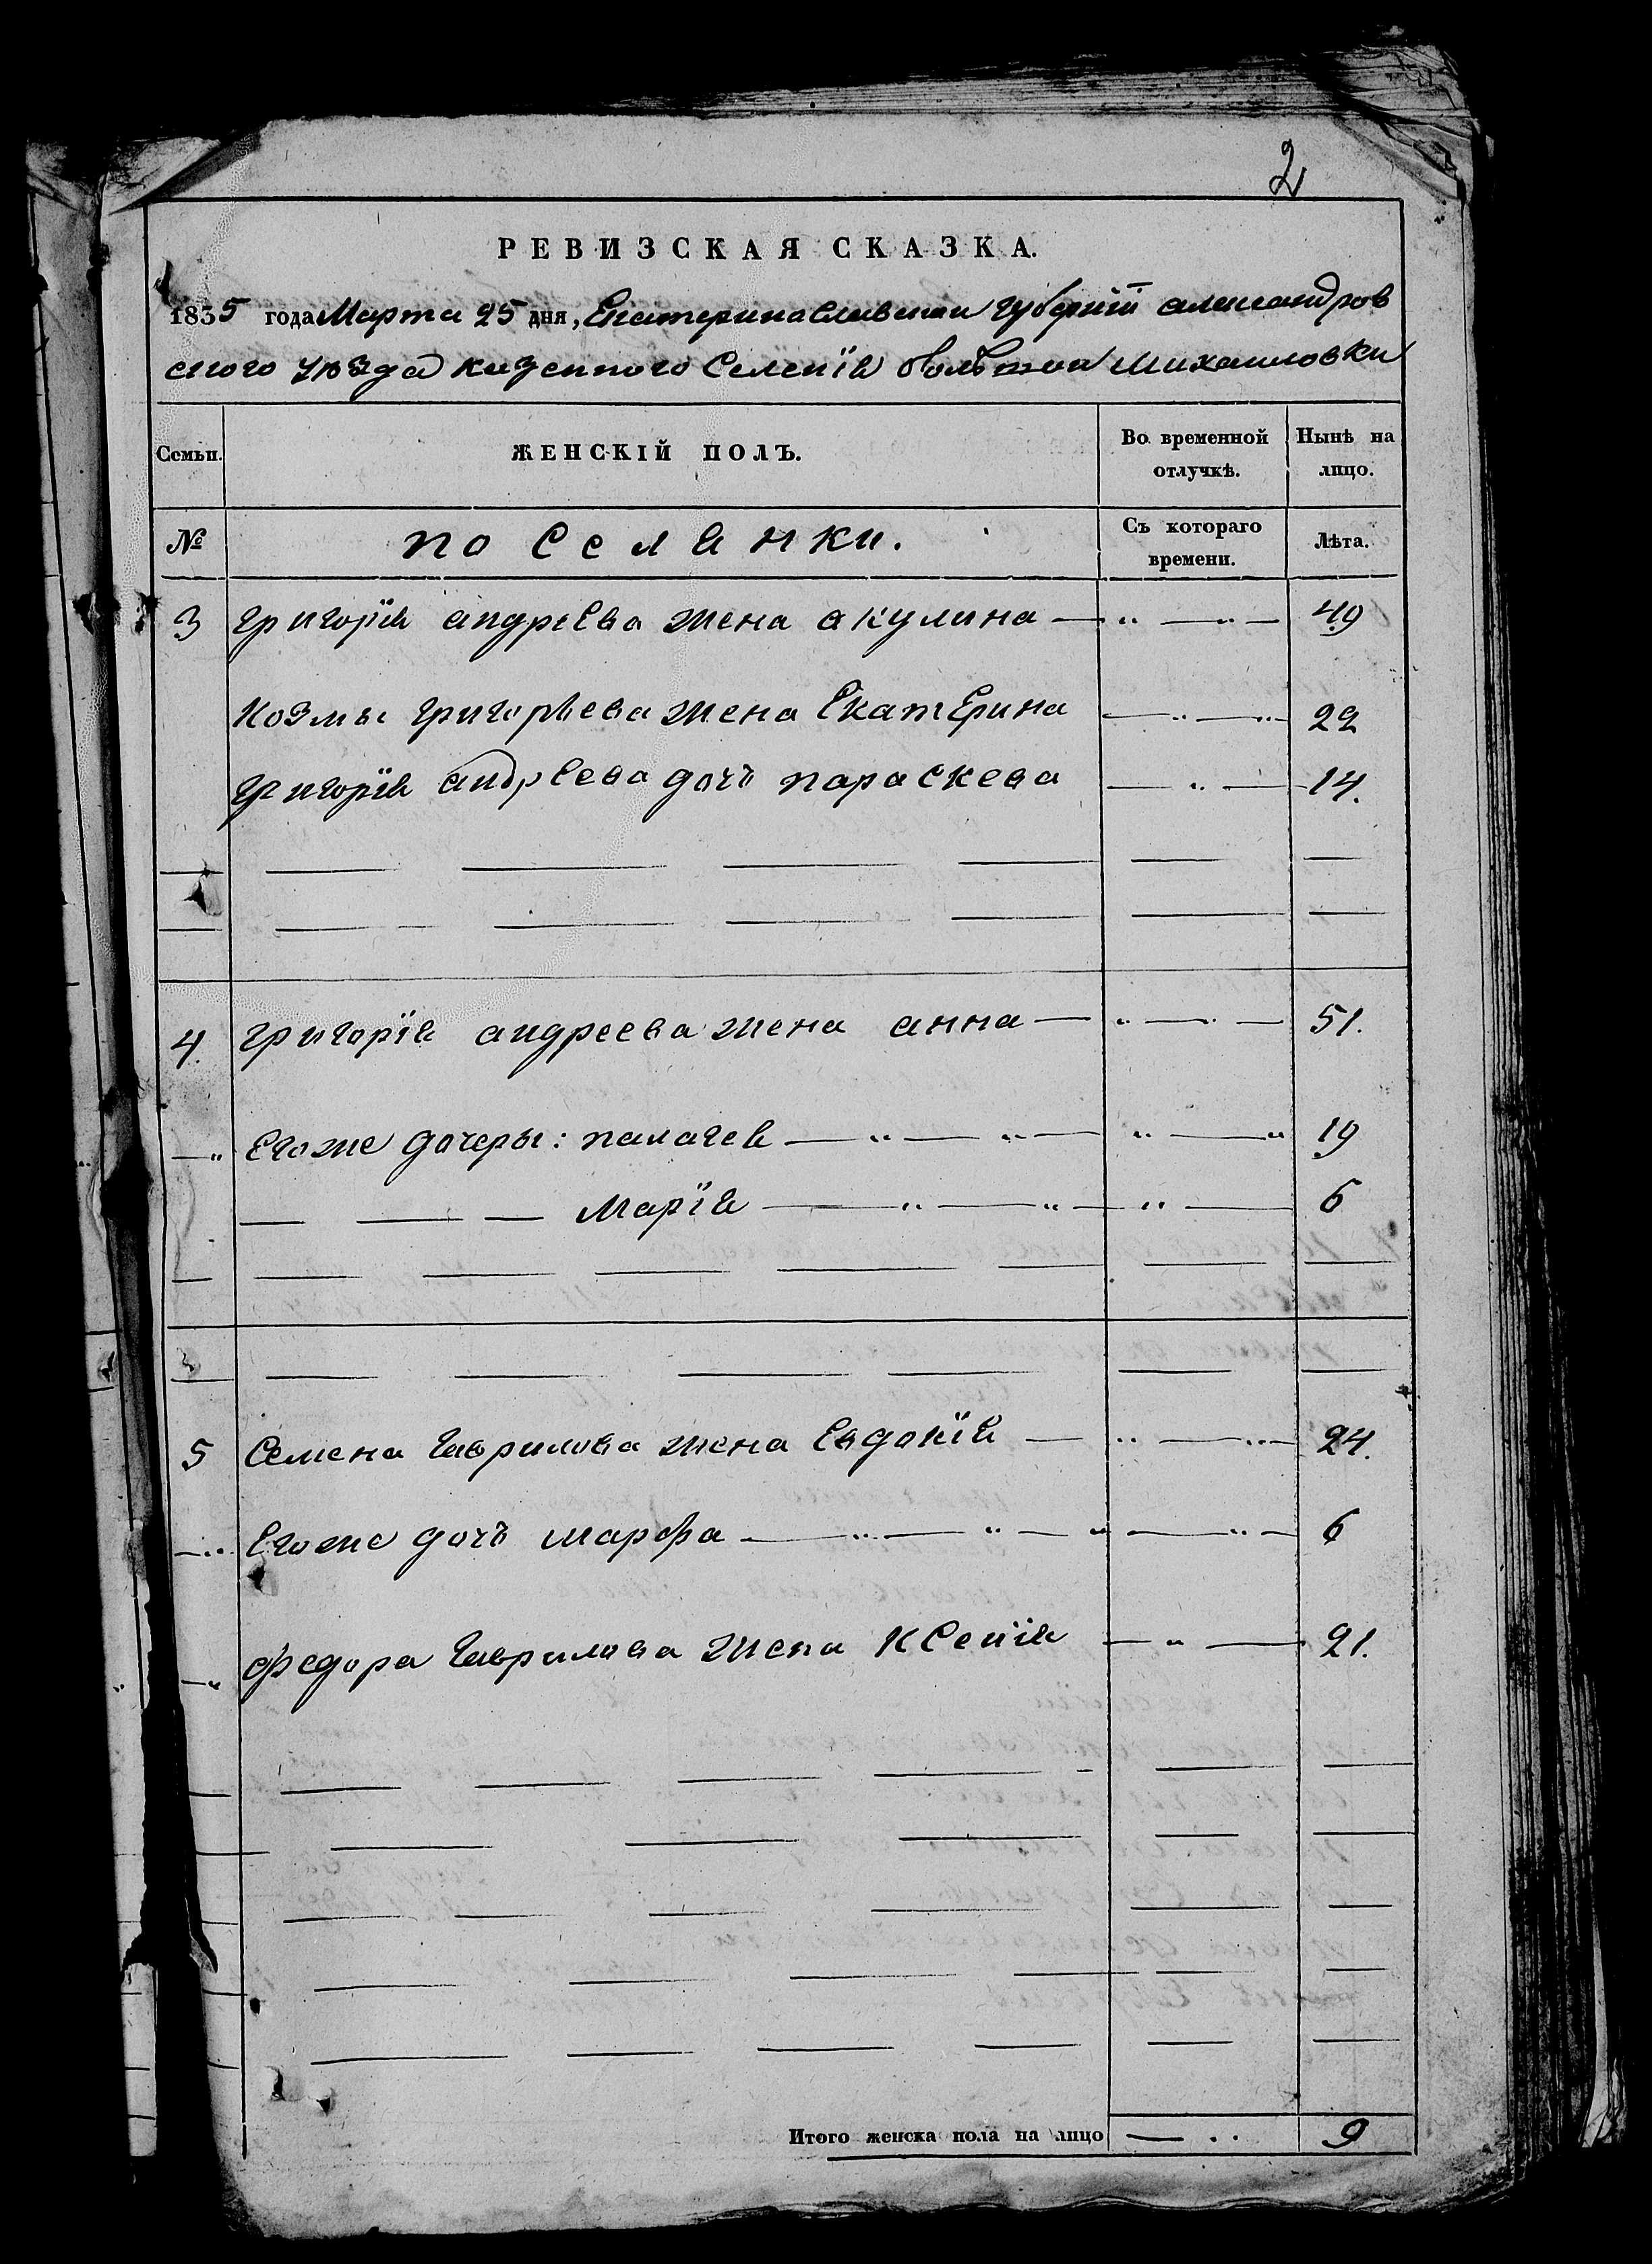 2
РЕВИЗСКАЯ СКАЗКА.
1835 года Марта 25 дня, Екатеринославской губернїи александров
ского уезда казенного Селенїя больтои Михаиловки
Семьи. ЖЕНСКІЙ ПОЛЪ. Во временной отлучкѣ. Нынѣ на лицо.
№ по Селянки. Съ котораго времени. Лѣта.
3 григорїя андреева жена акулина — " — " — 49
Козмы григорьева жена Екатерина — " — " 22
григорїя андреева дочь параскева — " — 14.
4. григорїя андреева жена анна — " — " — 51.
— " Егоже дочеры: палагея — " — " — " — " 19
— — — Марїя — " — " — " — 6
5 Семена гаврилова жена Евдокїя — " — " — 24.
— " Егоже дочь марфа — " — " — " — " — 6
— " федора гаврилова жена Ксенїя — " — 21.
Итого женска пола на лицо — " 9